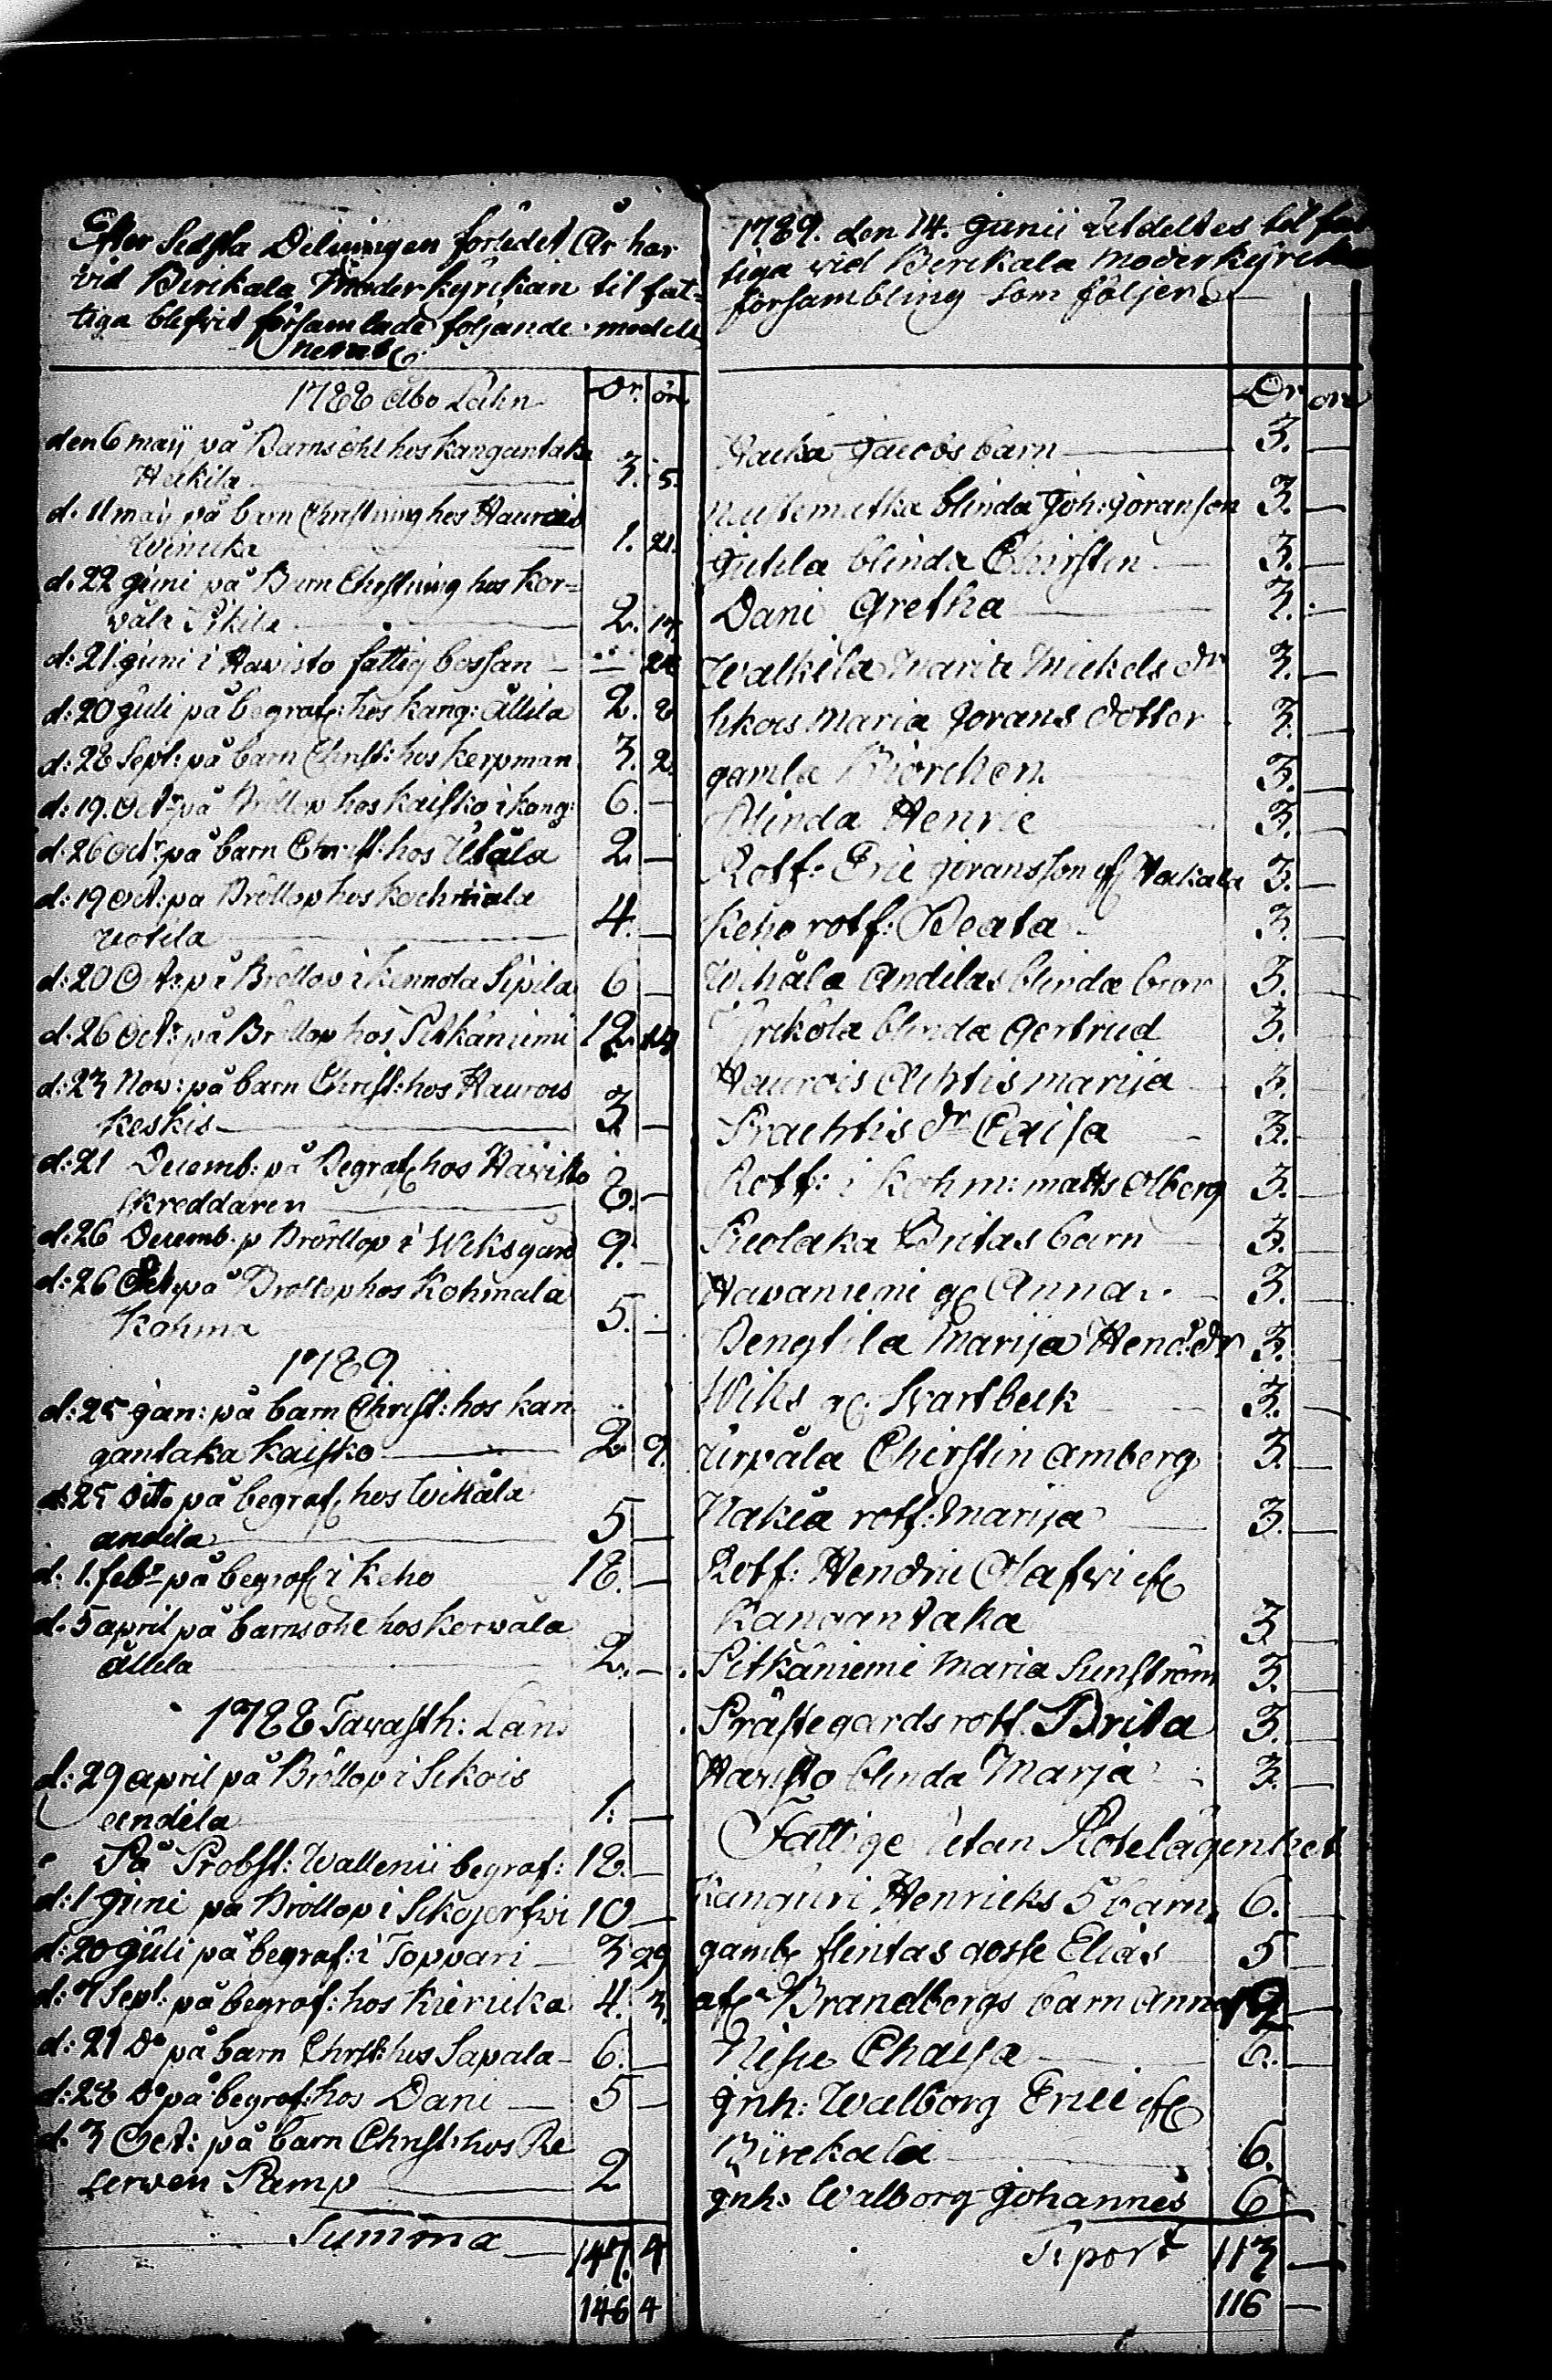 Efter Sedsta Delningen förledet År har
vid Birikala Moder kyrikan til fat-
tiga blefvit församlade följande medel
1788 Åbo Lähn Dr. öre
den 6 maij på Barnsöhl hos kangantaka
Heikila 3. 5.
d. 11 maij på barn Christning hos Haurois
1. 21.
d. 22 juni på Barn Christning hos Kor-
wåla Pikila 2. 17
d: 21 juni i Havisto fattig bossan
d: 20 juli på begraf: hos kang: Ållila 2. 8
d: 28 Sept: på barn Christ: hos kerpman 3. 2.
d: 19. Octr på Bröllop hos kaisko i kang: 6. —
d: 26 octr på barn Christ: hos Utåla 2 —
d: 19 Oct: på Bröllop hos kochmala
uotila 4. —
d: 20 Octr på Bröllop i kennola Sipila 6 —
d: 26 Octr på Bröllop hos Pitkäniemi 12. 14
d: 23 Nov: på barn Christ: hos Haurois
keskis 3 —
d: 21 Decemb: på Begraf hos Havisto
skreddaren 8. —
d: 26 Decemb. p Bröllop i Wiksgård 9. —
d: 26 Oct på Bröllop hos Kohmala
Kohma 5. —
1789
d: 25 jan: på barn Christ: hos kan
gantaka kaisko 2 9.
d: 25 dito på begraf hos Wikåla
andila 5 —
d: 1. febr på begraf i keho 18. —
d. 5 april på barnsöhl hos korwåla
ållila 2. —
1788 Tavasth: Län
d: 29 april på Bröllop i Sikois
andila 1. —
På Probst: Wallenii begraf: 18. —
d: 1 juni på Bröllop i Sikojerfwi 10 —
d: 20 juli på begraf: i Toppari 3 29
d: 7 Sept: på begraf: hos kiericka 4. 3.
d: 21 Do på barn Christ: hos Sapala 6. —
d: 28 Do på begraf: hos Dani 5 —
d. 3 Oct: på barn Christ: hos Re
serwen Ramp 2
Summa 147. 4
146 4
1789. den 14. junii utdeltes til fat
tiga vid Berikala moder kyrcko
försambling som följer
Dr öre
Jacobs barn 3. —
blinda Joh: jöransson 3. —
juhla blinda Chirstin 3. —
Dani Gretha 3. —
Walkila Maria Mickels dr 3. —
Sikois Maria Jörans dotter 3. —
gamla Björcken 3. —
Blinda Henric 3. —
Rotf: Eric jöransson if Nakala 3. —
Keho rotf: Beata 3. —
Wihåla Andilas blinda bror 3. —
Yrikola blinda Gertrud 3. —
Haurois Achtis marija 3. —
Prachtis dr Caisa 3. —
Rotf: i kohm: matts Olberg 3. —
Britas barn 3. —
Havaniemi gl Anna 3. —
Bengtila Marija Hend: dr 3. —
Wiks gl. Svartbeck 3. —
Urpåla Chirstin amberg 3. —
Nakiä rotf: Marija 3. —
Rotf: Hendric Olafsri ifl
Kangantaka 3 —
Pitkäniemi Maria Sunström 3. —
Prästegards rotf. Brita 3. —
Havisto blinda Marja 3. —
Fattige utan Rotelägenhet
Henricks 5 barn 6. —
gambl flintas Elias 5 —
afl Brandbergs barn Anna
Chaisa 6. —
jnh: Walborg Ericí ifl
Birckala 6. —
jnh: Walborg Johannes 6
113 —
116 —